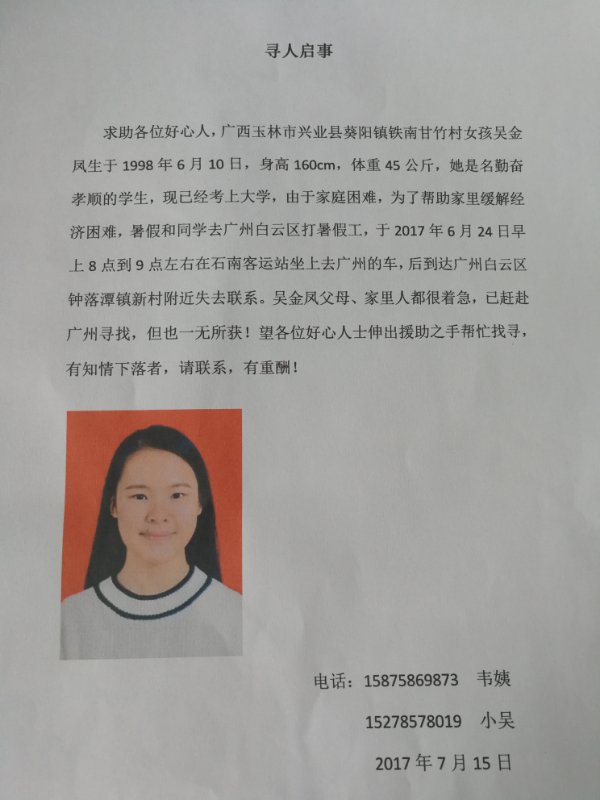 寻人启事
求助各位好心人，广西玉林市兴业县葵阳镇铁南甘竹村女孩吴金
凤生于 1998 年 6 月 10 日，身高 160cm，体重 45 公斤，她是名勤奋
孝顺的学生，现已经考上大学，由于家庭困难，为了帮助家里缓解经
济困难，暑假和同学去广州白云区打暑假工，于 2017 年 6 月 24 日早
上 8 点到 9 点左右在石南客运站坐上去广州的车，后到达广州白云区
钟落潭镇新村附近失去联系。吴金凤父母、家里人都很着急，已赶赴
广州寻找，但也一无所获！望各位好心人士伸出援助之手帮忙找寻，
有知情下落者，请联系，有重酬！
电话：15875869873 韦姨
15278578019 小吴
2017 年 7 月 15 日